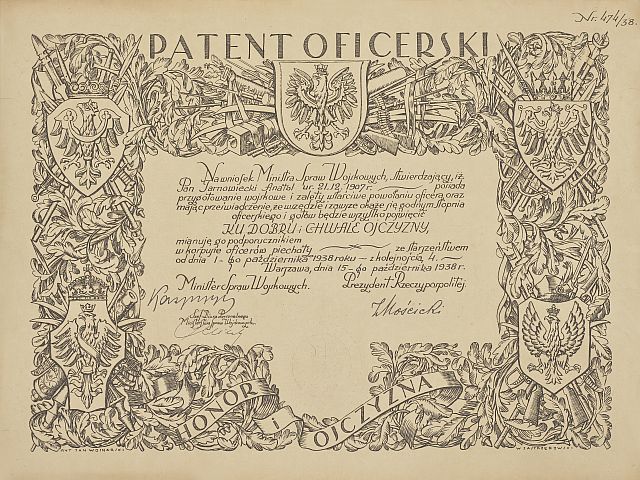 Nr. 474/38.
PATENT OFICERSKI
Na wniosek Ministra Spraw Wojskowych, stwierdzający, iż
Pan Tarnowiecki Anatol ur. 21.12.1907 r. posiada
przygotowanie wojskowe i zalety właściwe powołaniu oficera oraz
mając przeświadczenie, że wszędzie i zawsze okaże się godnym stopnia
oficerskiego i gotów będzie wszystko poświęcić
KU DOBRU i CHWALE OJCZYZNY,
mianuję go podporucznikiem
w korpusie oficerów piechoty ze starszeństwem
od dnia 1-go października 1938 roku - z kolejnością 4. -
Warszawa, dnia 15-go października 1938 r.
Minister Spraw Wojskowych. Prezydent Rzeczypospolitej.
I. Mościcki
Szef Biura Personalnego
Ministerstwa Spraw Wojskowych.
HONOR i OJCZYZNA
RYT. JAN WOJNARSKI
W. JASTRZĘBOWSKI